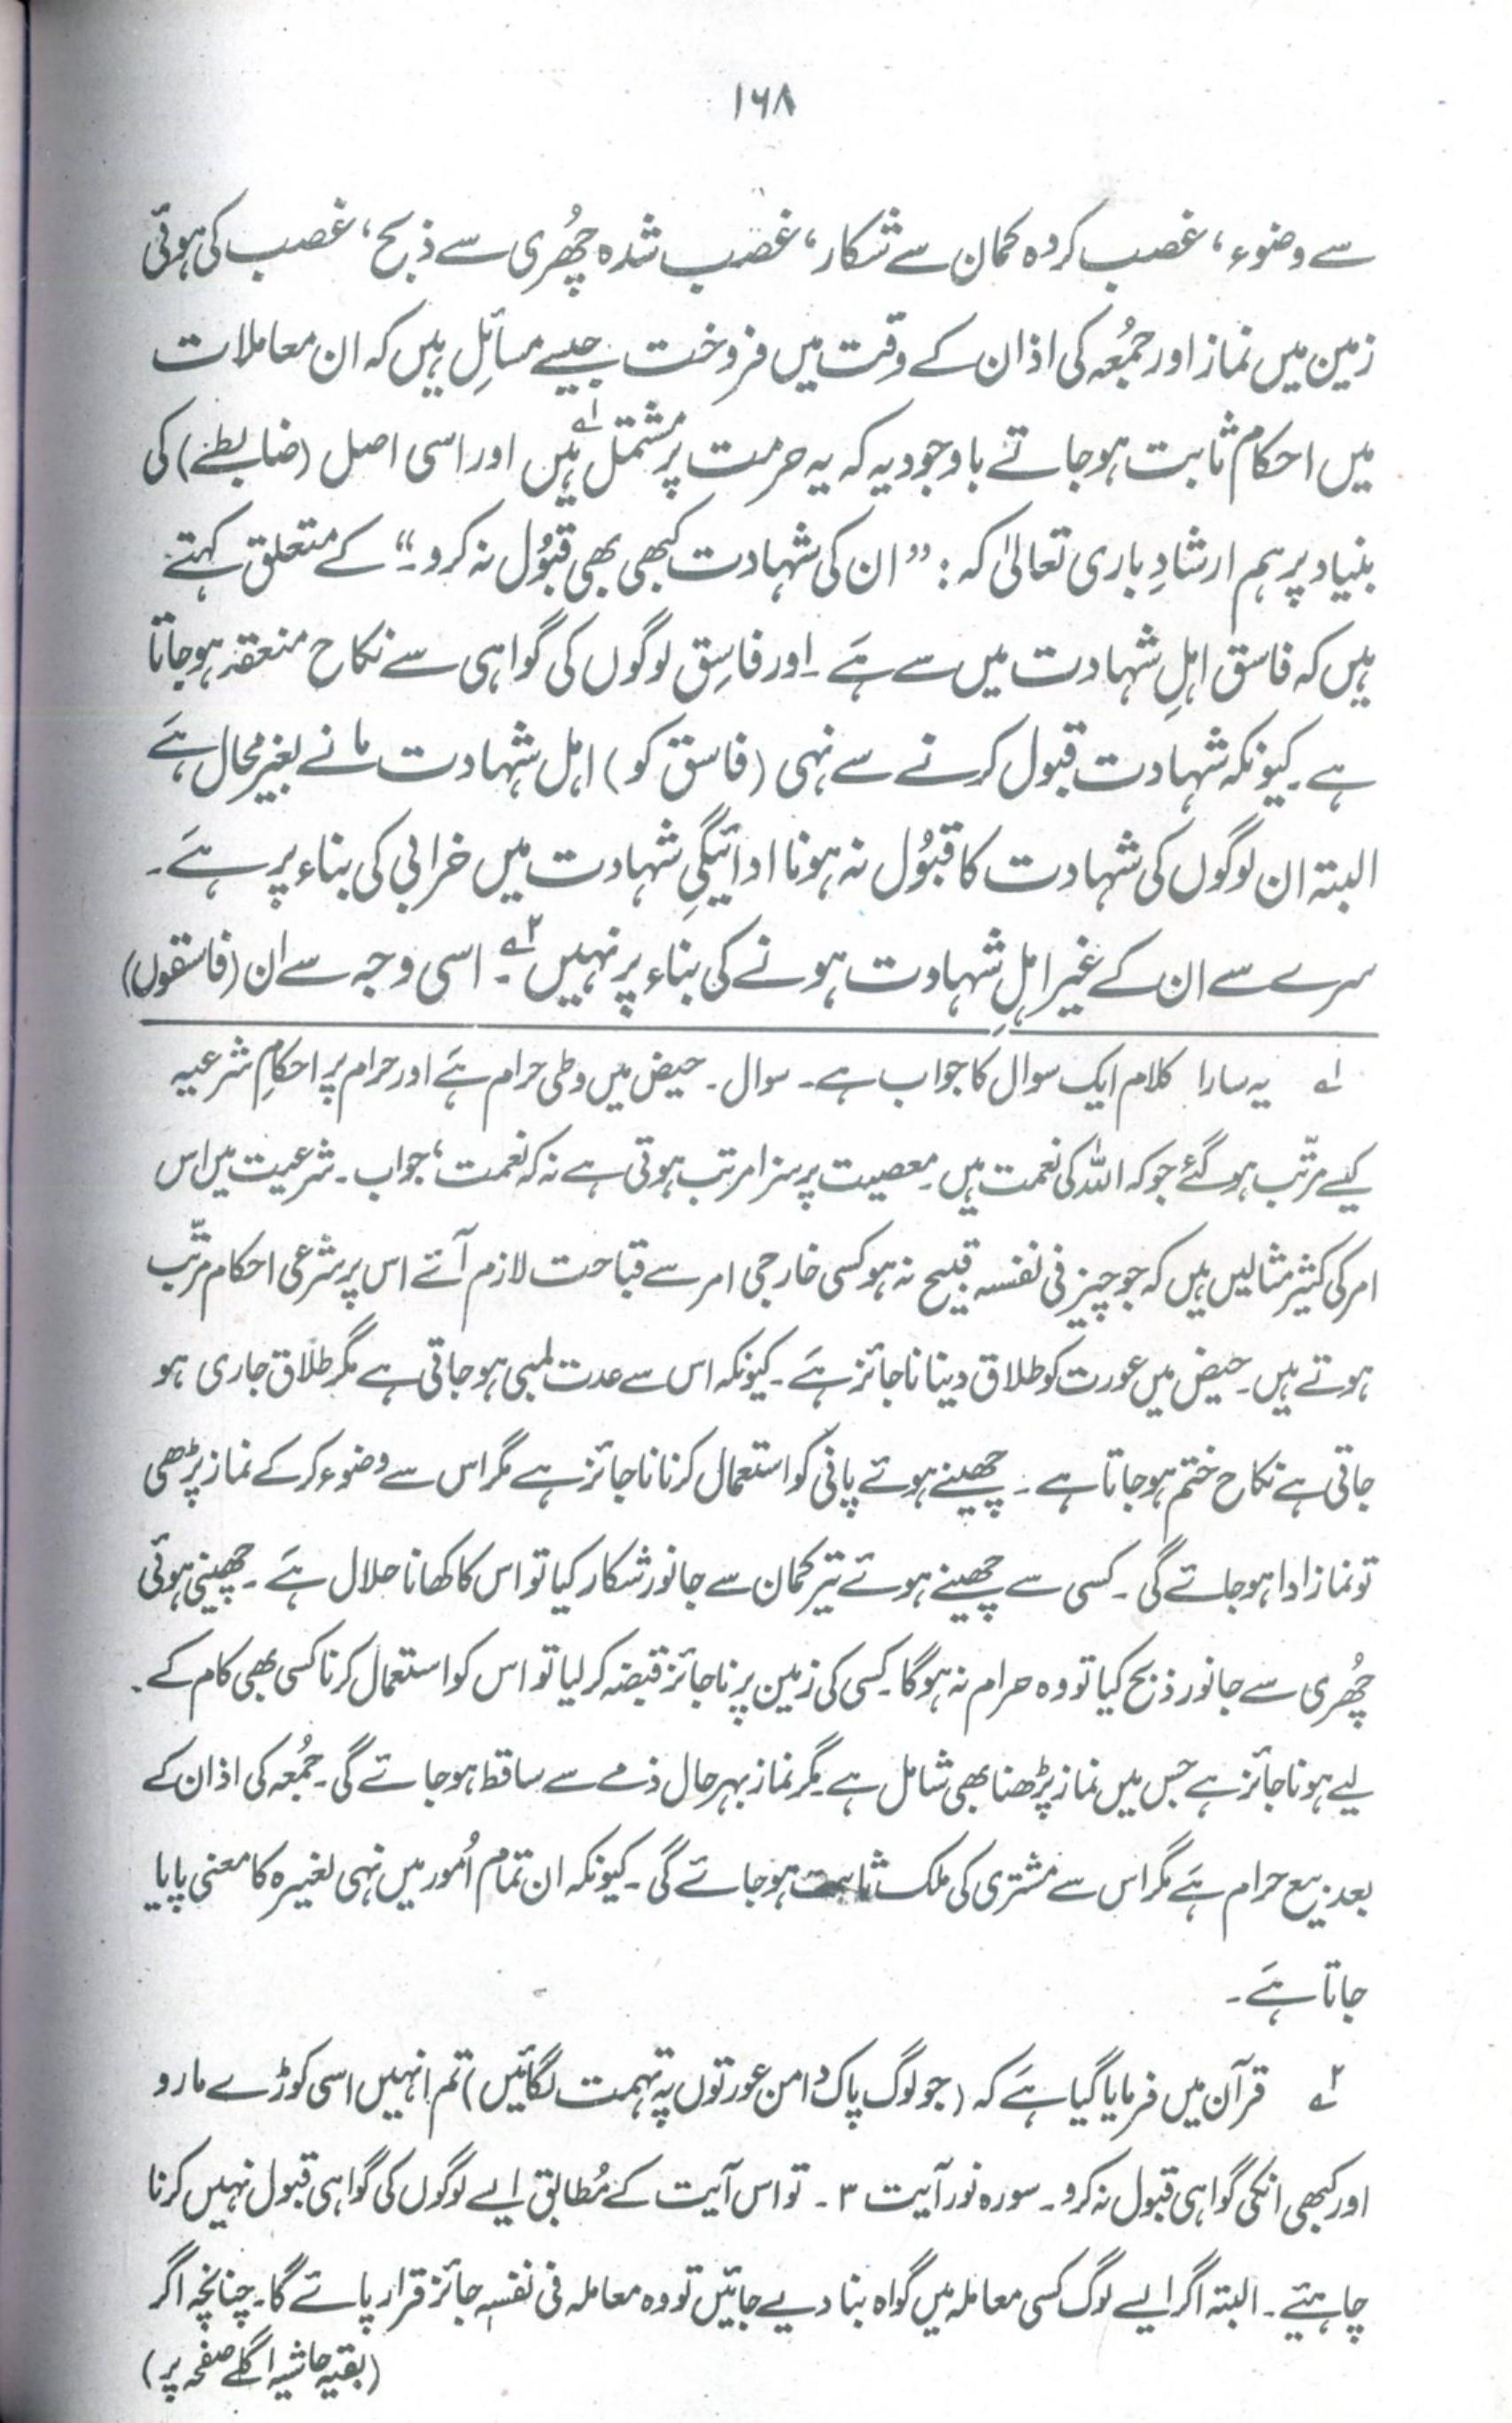 ۱۶۸
سے وضوء، غصب کردہ کمان سے شکار، غصب شدہ چھُری سے ذبح، غصب کی ہوئی
زمین میں نماز اور جمُعہ کی اذان کے وقت میں فروخت جیسے مسائلِ ہیں کہ ان معاملات
میں احکام ثابت ہوجاتے باوجودیہ کہ یہ حرمت پر مشتمل ہیں ۱ے اور اسی اصل (ضابطے) کی
بنیاد پر ہم ارشادِ باری تعالیٰ کہ: ”ان کی شہادت کبھی بھی قبُول نہ کرو۔“ کے متعلق کہتے
ہیں کہ فاسق اہلِ شہادت میں سے ہَے ۔ اور فاسِق لوگوں کی گواہی سے نکاح منعقد ہوجاتا
ہے۔ کیونکہ شہادت قبول کرنے سے نہی (فاسق کو) اہل شہادت مانے بغیر محال ہَے
البتہ ان لوگوں کی شہادت کا قبُول نہ ہونا ادائیگیِ شہادت میں خرابی کی بناء پر ہَے۔
سرے سے ان کے غیر اہلِ شہادت ہونے کی بناء پر نہیں ۲ے۔ اسی وجہ سے ان (فاسقوں)
۱ے یہ سارا کلام ایک سوال کا جواب ہے۔ سوال۔ حیض میں وطی حرام ہَے اور حرام پر احکامِ شرعیہ
کیسے مرتّب ہوگئے جو کہ اللہ کی نعمت ہیں۔ معصیت پر سزا مرتب ہوتی ہے نہ کہ نعمت، جواب۔ شرعیت میں اس
امر کی کثیر مثالیں ہیں کہ جو چیز فی نفسہ قبیح نہ ہو کسی خارجی امر سے قباحت لازم آتے اس پر شرعی احکام مرتّب
ہوتے ہیں۔ حیض میں عورت کو طلاق دینا ناجائز ہَے۔ کیونکہ اس سے عدت لمبی ہوجاتی ہے مگر طلاق جاری ہو
جاتی ہے نکاح ختم ہوجاتا ہے ۔ چھینے ہوئے پانی کو استعمال کرنا ناجائز ہے مگر اس سے وضوء کرکے نماز پڑھی
تو نماز ادا ہوجائے گی۔ کسی سے چھینے ہوئے تیر کمان سے جانور شکار کیا تو اس کا کھانا حلال ہَے ۔ چھینی ہوئی
چھُری سے جانور ذبح کیا تو وہ حرام نہ ہوگا۔ کسی کی زمین پر ناجائز قبضہ کرلیا تو اس کو استعمال کرنا کسی بھی کام کے
لیے ہو ناجائز ہے جس میں نماز پڑھنا بھی شامل ہے۔ مگر نماز بہرحال ذمے سے ساقط ہوجائے گی۔ جمُعہ کی اذان کے
بعد بیع حرام ہَے مگر اس سے مشتری کی ملک ثابت ہوجائے گی۔ کیونکہ ان تمام اُمور میں نہی لغیرہ کا معنی پایا
جاتا ہَے۔
۲ے قرآن میں فرمایا گیا ہَے کہ (جو لوگ پاک دامن عورتوں پہ تہمت لگائیں) تم انہیں اسی کوڑے مارو
اور کبھی انکی گواہی قبول نہ کرو۔ سورہ نور آیت ۳۔ تو اس آیت کے مُطابق ایسے لوگوں کی گواہی قبول نہیں کرنا
چاہئیے۔ البتہ اگر ایسے لوگ کسی معاملہ میں گواہ بنا دیے جائیں تو وہ معاملہ فی نفسہ جائز قرار پائے گا۔ چنانچہ اگر
(بقیہ حاشیہ اگلے صفحہ پر)